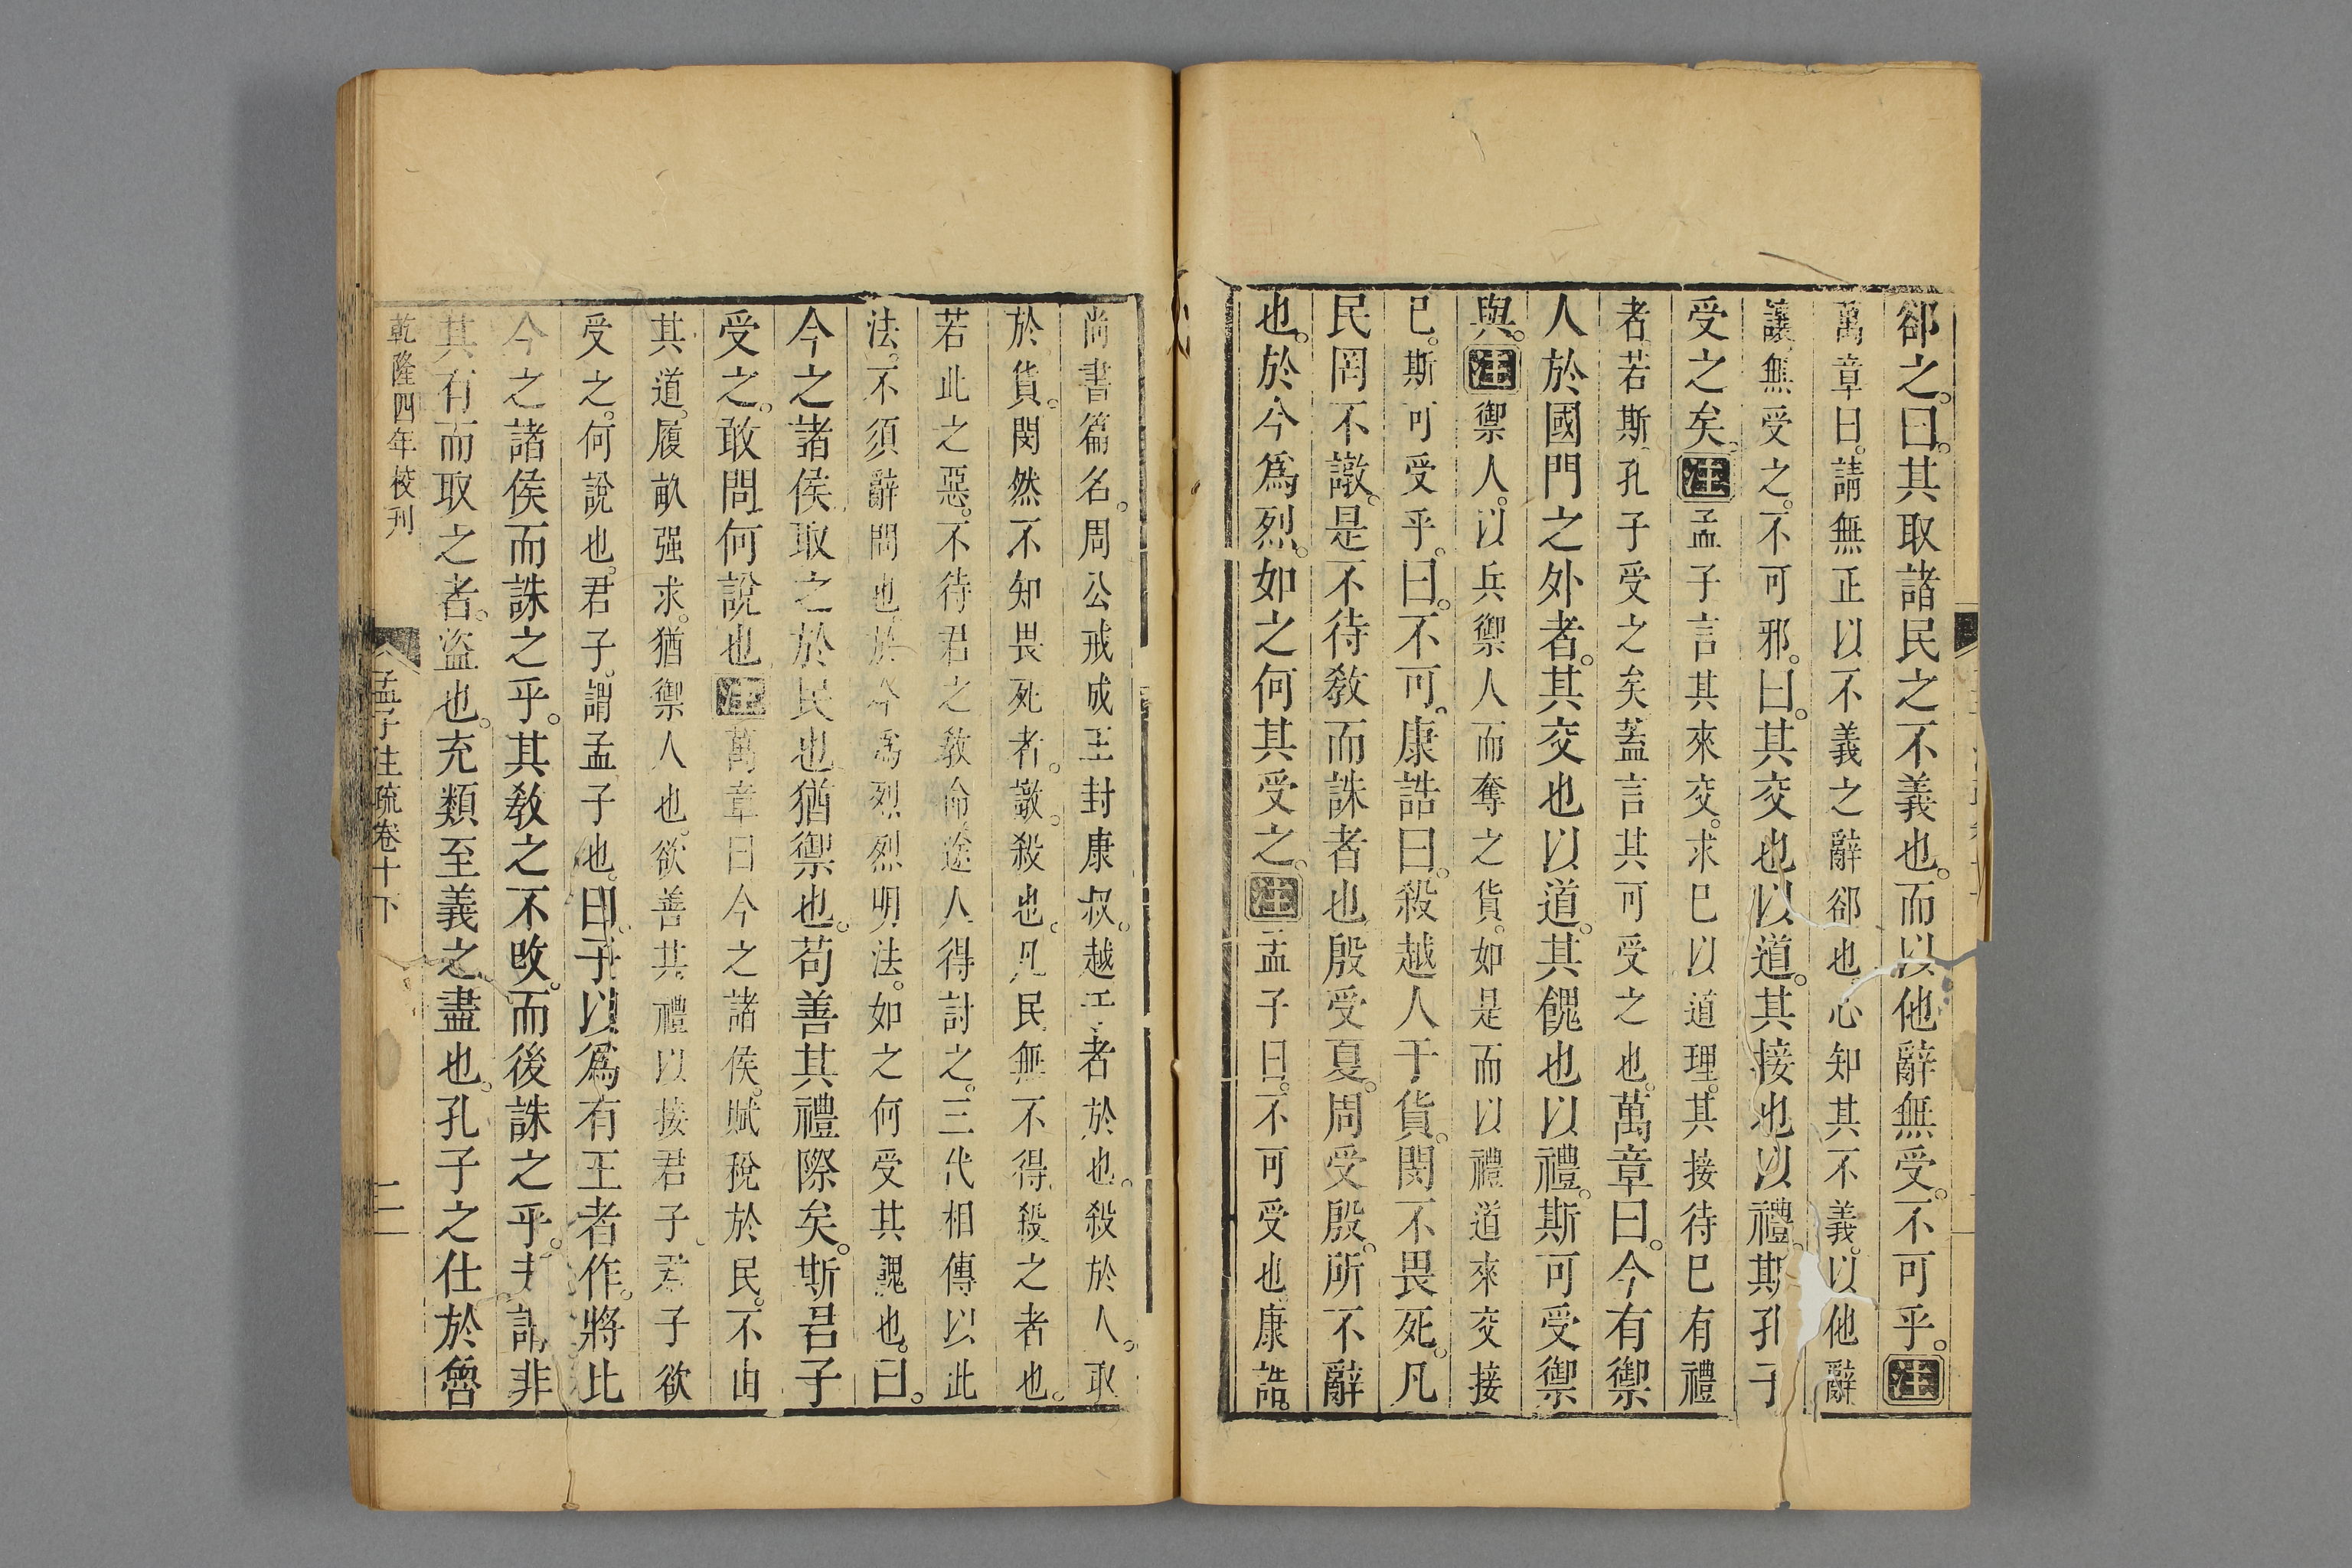 郤之。曰。其取諸民之不義也。而以他辭無受。不可乎。注
萬章曰。請無正以不義之辭郤也。心知其不義。以他辭
讓無受之。不可邪。曰。其交也以道。其接也以禮。斯孔子
受之矣。注孟子言其來交。求己以道理。其接待己有禮
者。若斯。孔子受之矣。蓋言其可受之也。萬章曰。今有禦
人於國門之外者。其交也以道。其餽也以禮。斯可受禦
與。注禦人。以兵禦人而奪之貨。如是而以禮道來交接
己。斯可受乎。曰。不可。康誥曰。殺越人于貨。閔不畏死。凡
民罔不譈。是不待教而誅者也。殷受夏。周受殷。所不辭
也。於今爲烈。如之何其受之。注孟子曰。不可受也。康誥。
尚書篇名。周公戒成王封康叔。越于者於也。殺於人。取
於貨。閔然不知畏死者。譈。殺也。凡民無不得殺之者也。
若此之惡。不待君之教命。遂人得討之。三代相傳以此
法。不須辭問也。於今爲烈。烈明法。如之何受其餽也。曰。
今之諸侯取之於民也。猶禦也。苟善其禮際矣。斯君子
受之。敢問何說也。注萬章曰。今之諸侯。賦稅於民。不由
其道。履畝强求。猶禦人也。欲善其禮以接君子。君子欲
受之。何說也。君子。謂孟子也。曰。子以爲有王者作。將比
今之諸侯而誅之乎。其教之不改。而後誅之乎。夫謂非
其有而取之者。盜也。充類至義之盡也。孔子之仕於魯
乾隆四年校刊
孟子注疏卷十下
二